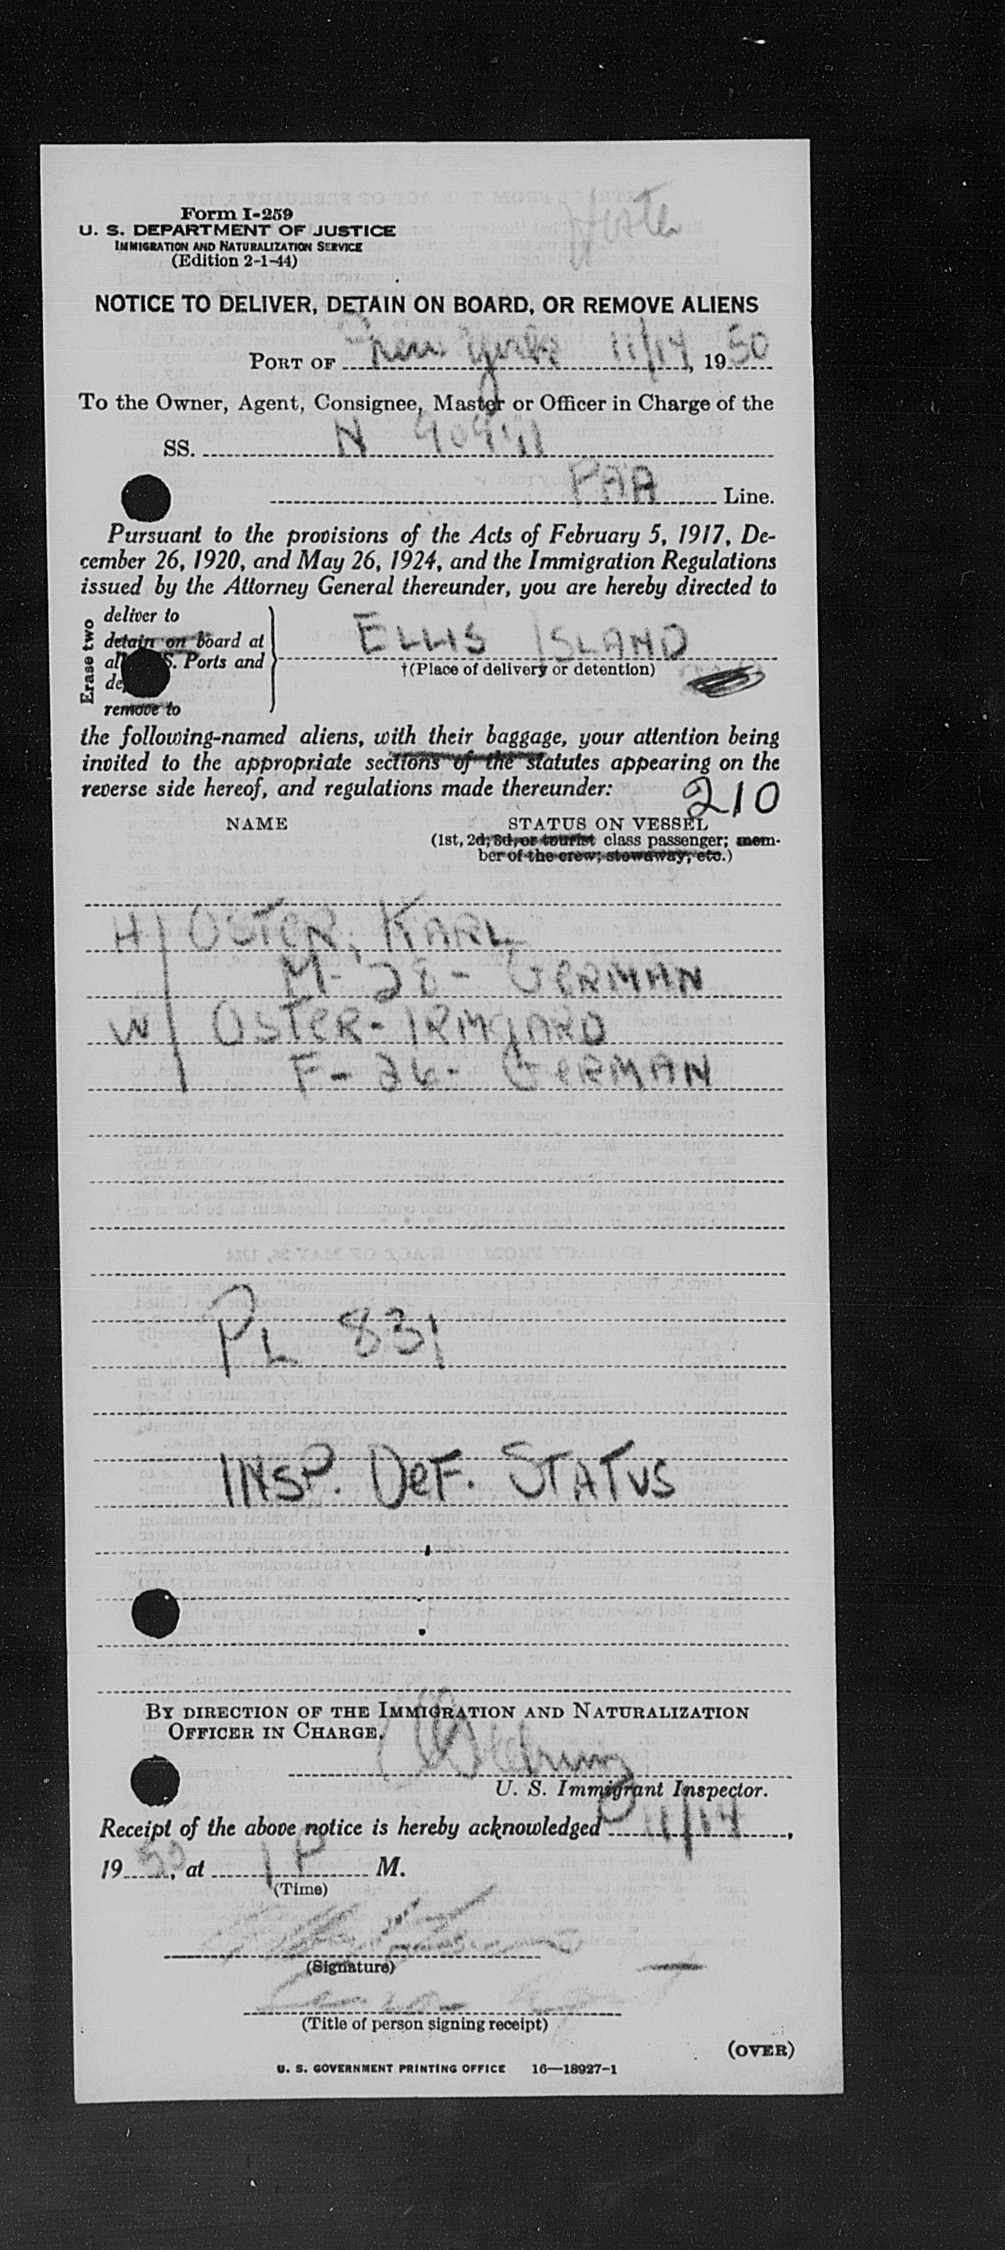 Form I-259
U. S. DEPARTMENT OF JUSTICE
IMMIGRATION AND NATURALIZATION SERVICE
(Edition 2-1-44)
NOTICE TO DELIVER, DETAIN ON BOARD, OR REMOVE ALIENS
PORT OF New York 11/14, 1950
To the Owner, Agent, Consignee, Master or Officer in Charge of the
SS. N 90941
PAA Line.
Pursuant to the provisions of the Acts of February 5, 1917, De-
cember 26, 1920, and May 26, 1924, and the Immigration Regulations
issued by the Attorney General thereunder, you are hereby directed to
Erase two
deliver to
detain on board at
al S. Ports and
de
remove to
ELLIS ISLAND
†(Place of delivery or detention)
the following-named aliens, with their baggage, your attention being
invited to the appropriate sections of the statutes appearing on the
reverse side hereof, and regulations made thereunder:
210
NAME STATUS ON VESSEL
(1st, 2d, 3d, or tourist class passenger; mem-
ber of the crew; stowaway, etc.)
H OSTER, KARL
M-28-GERMAN
W OSTER-IRMGARD
F-26-GERMAN
PL 831
INSP. DEF. STATUS
BY DIRECTION OF THE IMMIGRATION AND NATURALIZATION
OFFICER IN CHARGE.
U. S. Immigrant Inspector.
Receipt of the above notice is hereby acknowledged 11/14,
1950, at 1 P M.
(Time)
(Signature)
(Title of person signing receipt)
(OVER)
U. S. GOVERNMENT PRINTING OFFICE 16—18927-1